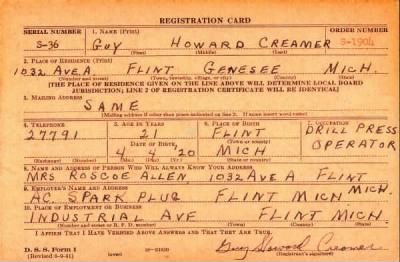 REGISTRATION CARD
SERIAL NUMBER 1. NAME (Print) ORDER NUMBER
S-36 GUY HOWARD CREAMER S-1904
(First) (Middle) (Last)
2. PLACE OF RESIDENCE (Print)
1032 AVE.A. FLINT GENESEE MICH.
(Number and street) (Town, township, village, or city) (County) (State)
[THE PLACE OF RESIDENCE GIVEN ON THE LINE ABOVE WILL DETERMINE LOCAL BOARD
JURISDICTION; LINE 2 OF REGISTRATION CERTIFICATE WILL BE IDENTICAL]
3. MAILING ADDRESS
SAME
[Mailing address if other than place indicated on line 2. If same insert word same]
4. TELEPHONE 5. AGE IN YEARS 6. PLACE OF BIRTH 7. OCCUPATION
27791 21 FLINT DRILL PRESS
DATE OF BIRTH (Town or county) OPERATOR
4 4 20 MICH
(Exchange) (Number) (Mo.) (Day) (Yr.) (State or country)
8. NAME AND ADDRESS OF PERSON WHO WILL ALWAYS KNOW YOUR ADDRESS
MRS ROSCOE ALLEN, 1032 AVE A FLINT
9. EMPLOYER'S NAME AND ADDRESS MICH
AC. SPARK PLUG FLINT MICH
10. PLACE OF EMPLOYMENT OR BUSINESS
INDUSTRIAL AVE FLINT MICH.
(Number and street or R. F. D. number) (Town) (County) (State)
I AFFIRM THAT I HAVE VERIFIED ABOVE ANSWERS AND THAT THEY ARE TRUE.
D. S. S. Form 1 Guy Howard Creamer
(Revised 6-9-41) (over) (Registrant's signature)